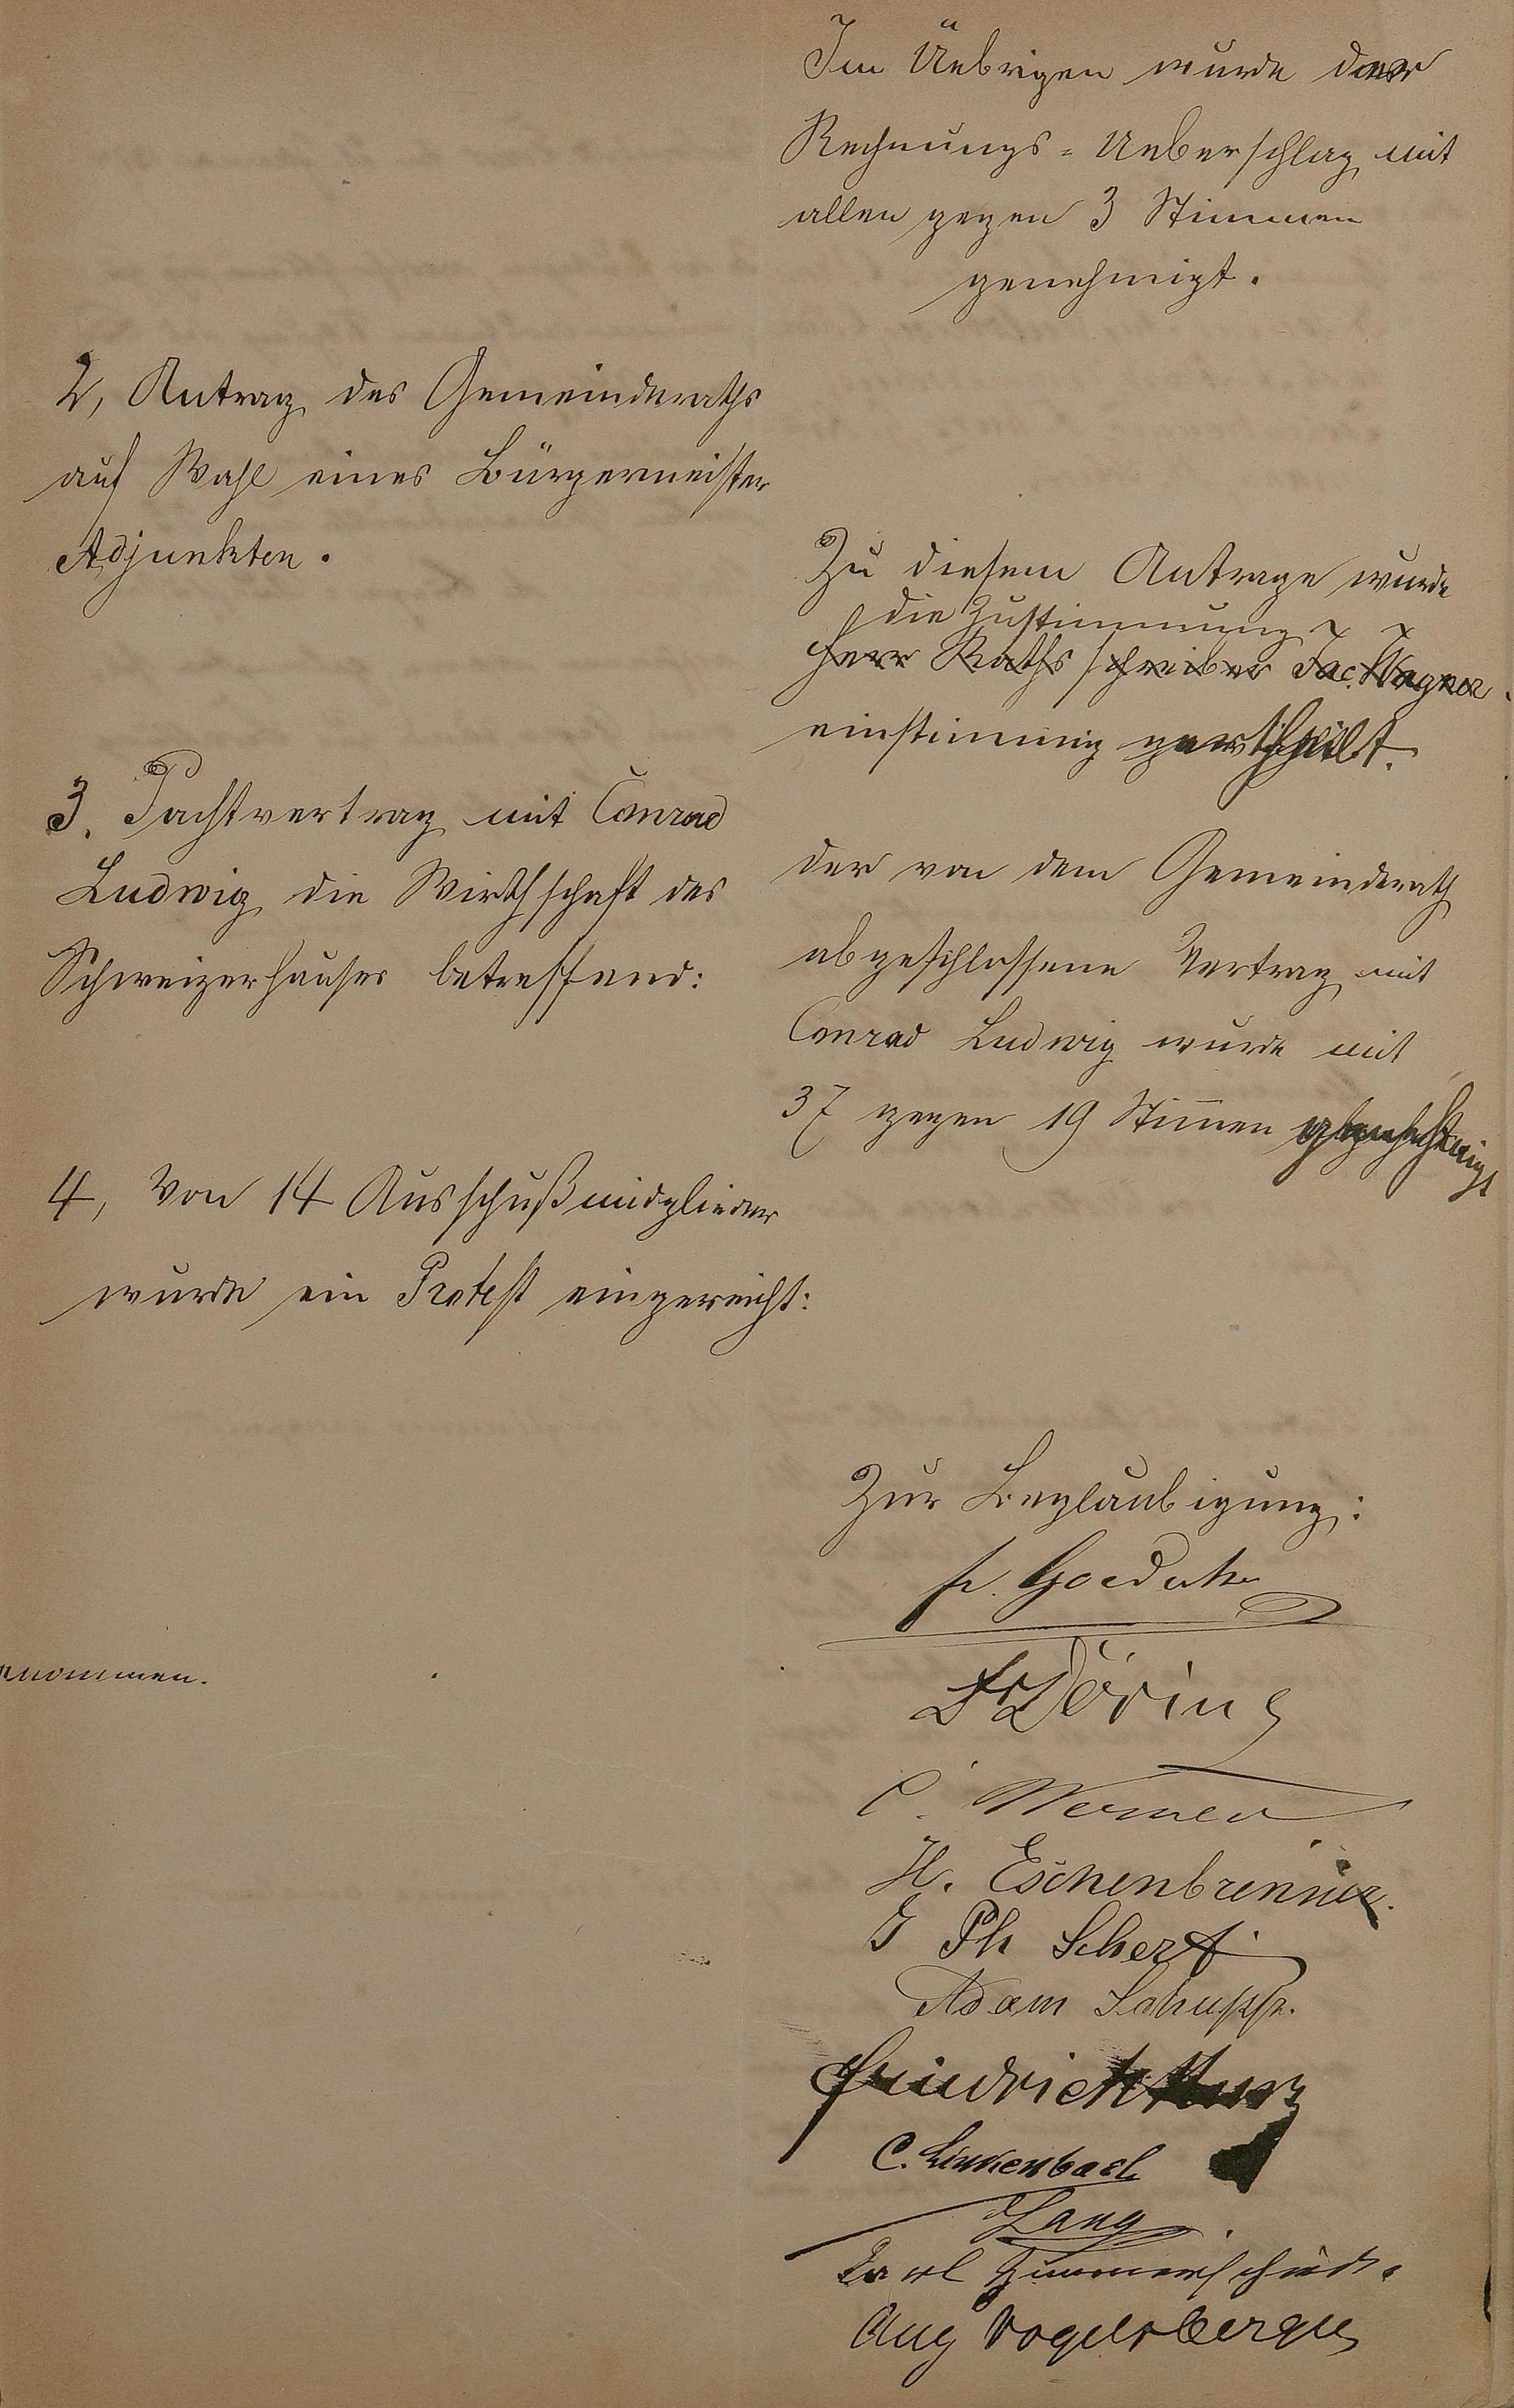 Im Uebrigen wurde der
Rechnungs-Ueberschlag mit
allen gegen 3 Stimmen
genehmigt.
2, Antrag des Gemeinderaths
auf Wahl eines Bürgermeister
Adjunkten.
Zu diesem Antrage wurde
die Zustimmung
Herr Rathsschreiber Jac. Wagner
einstimmig
3. Pachtvertrag mit Conrad
Ludwig die Wirthschaft des
Schweizerhauses betreffend:
der von dem Gemeinderath
abgeschlossene Vertrag mit
Conrad Ludwig wurde mit
37 gegen 19 Stimmen
4, Von 14 Ausschußmidglieder
wurde ein Protest eingereicht:
Zur Beglaubigung:
Fr. Goedecke
Fr Döring
C. Werner
H. Eschenbrenner.
J Ph Scherf
Adam Schupp.
Friedrich Kurz
C. Linkenbach
Lang
Karl Zimmerschied.
Aug Vogelsberger
nommen.